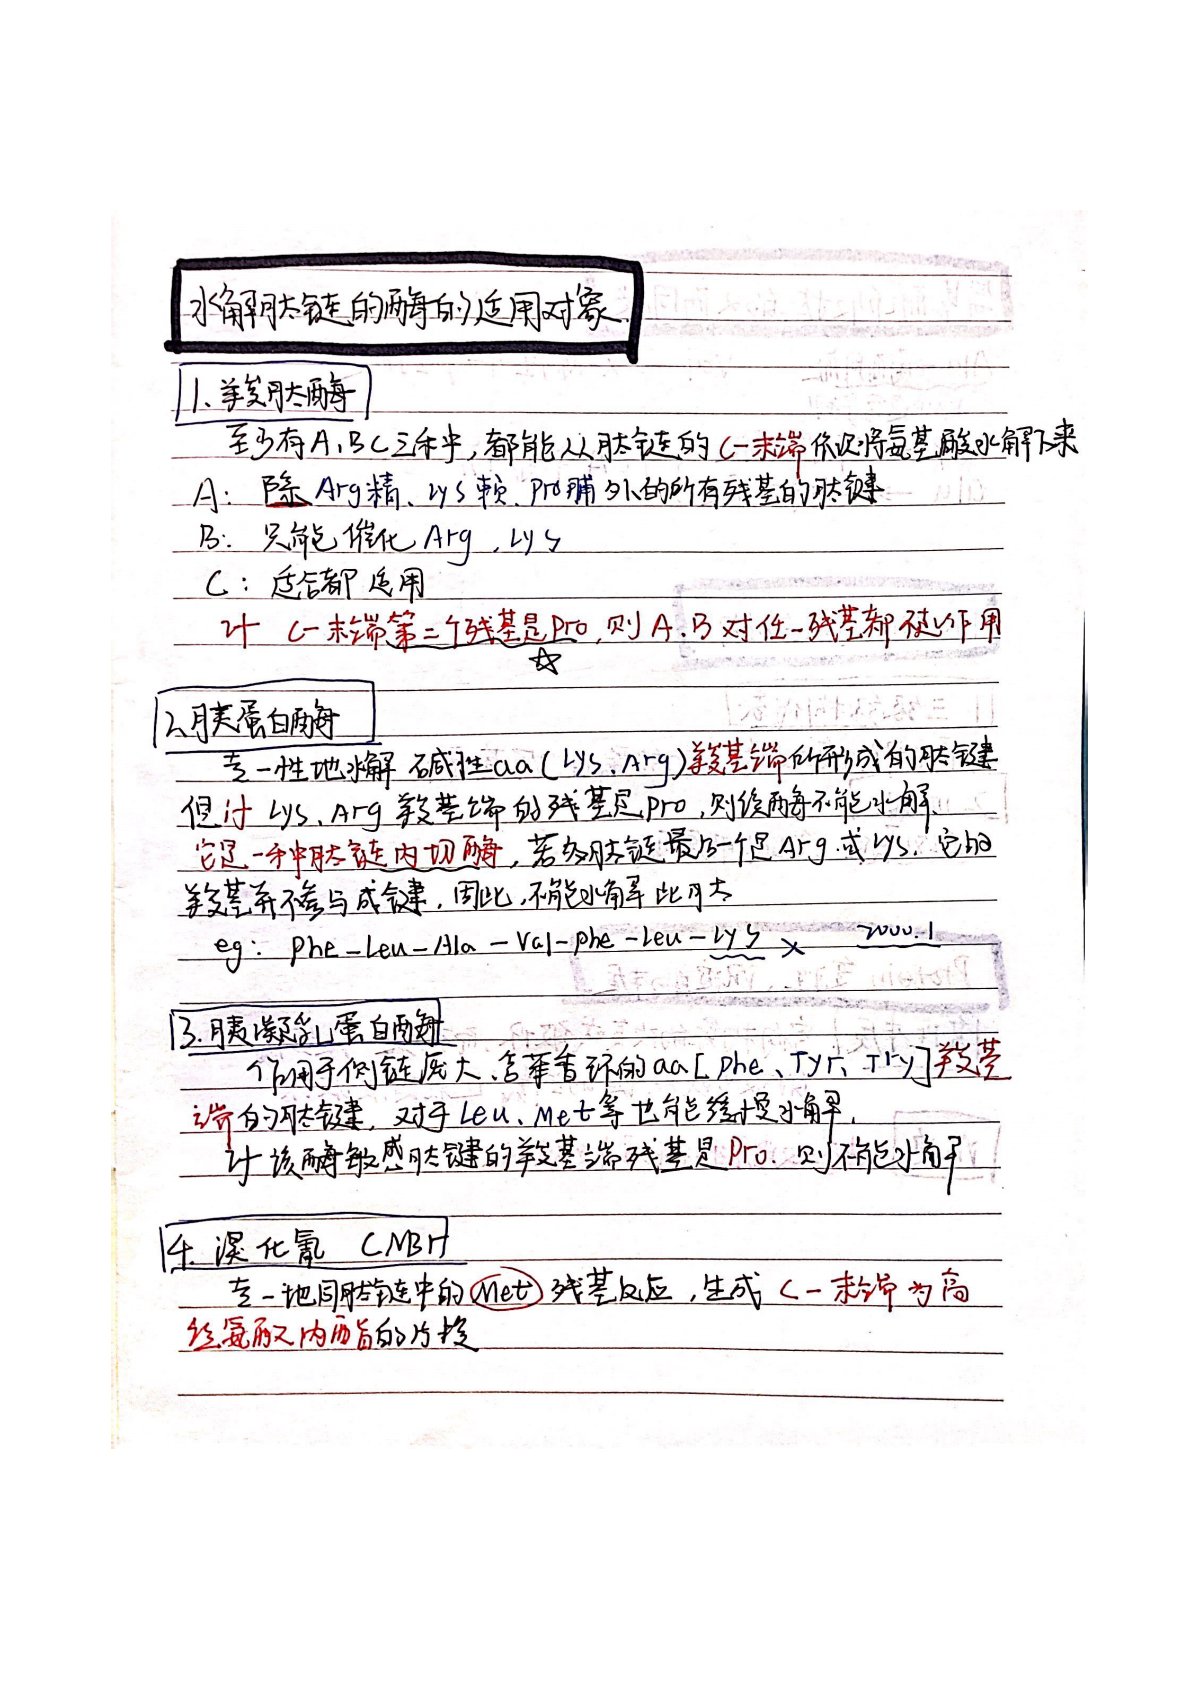 水解肽链的酶的适用对象
1. 羧肽酶
至少有A、B C三种, 都能从肽链的 C-末端依次将氨基酸水解下来
A: 除 Arg精、Lys赖、Pro脯外的所有残基的肽键
B: 只能催化 Arg, Lys
C: 适合都适用
C-末端第二个残基是Pro, 则 A、B 对任一残基都 作用
2、胰蛋白酶
专一性地水解 碱性aa(Lys、Arg)羧基端所形成的肽键
但 Lys、Arg 羧基端的残基是Pro, 则该酶不能水解.
它是一种肽链内切酶, 若多肽链最后一个是Arg 或 Lys, 它的
羧基并不参与成键, 因此, 不能水解此肽
eg: phe-Leu-Ala-Val-phe-Leu-Lys × 2000.1
3. 胰凝乳蛋白酶
作用于侧链庞大、含苯香环的aa[Phe、Tyr、Try]羧基
端的肽键, 对于Leu、Met等也能缓慢水解.
该酶敏感肽键的羧基端残基是Pro. 则不能水解
4. 溴化氰 CNBr
专一地同肽链中的Met残基反应, 生成 C-末端为高
丝氨酸内酯的片段